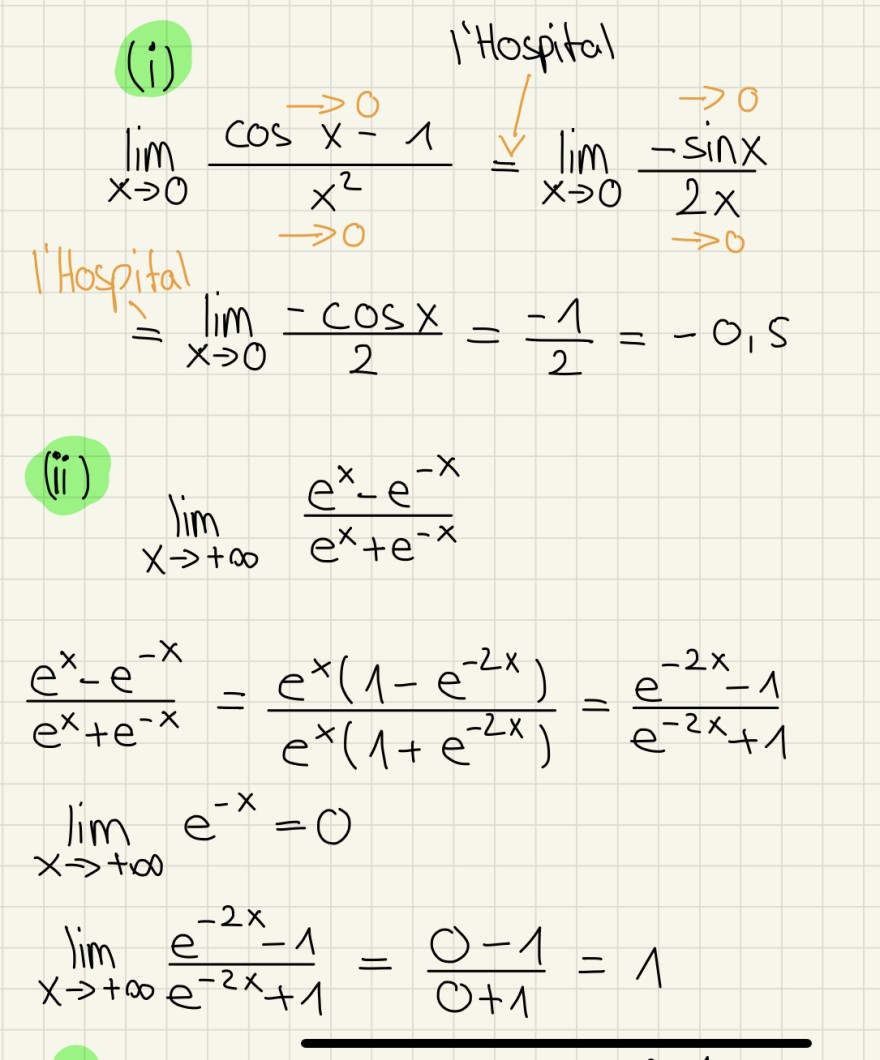 (i) l'Hospital
lim x→0 (cos x - 1 →0)/(x² →0) = lim x→0 (-sinx →0)/(2x →0)
l'Hospital = lim x→0 (-cosx)/2 = -1/2 = -0,5
(ii) lim x→+∞ (eˣ-e⁻ˣ)/(eˣ+e⁻ˣ)
(eˣ-e⁻ˣ)/(eˣ+e⁻ˣ) = (eˣ(1-e⁻²ˣ))/(eˣ(1+e⁻²ˣ)) = (e⁻²ˣ-1)/(e⁻²ˣ+1)
lim x→+∞ e⁻ˣ = 0
lim x→+∞ (e⁻²ˣ-1)/(e⁻²ˣ+1) = (0-1)/(0+1) = 1